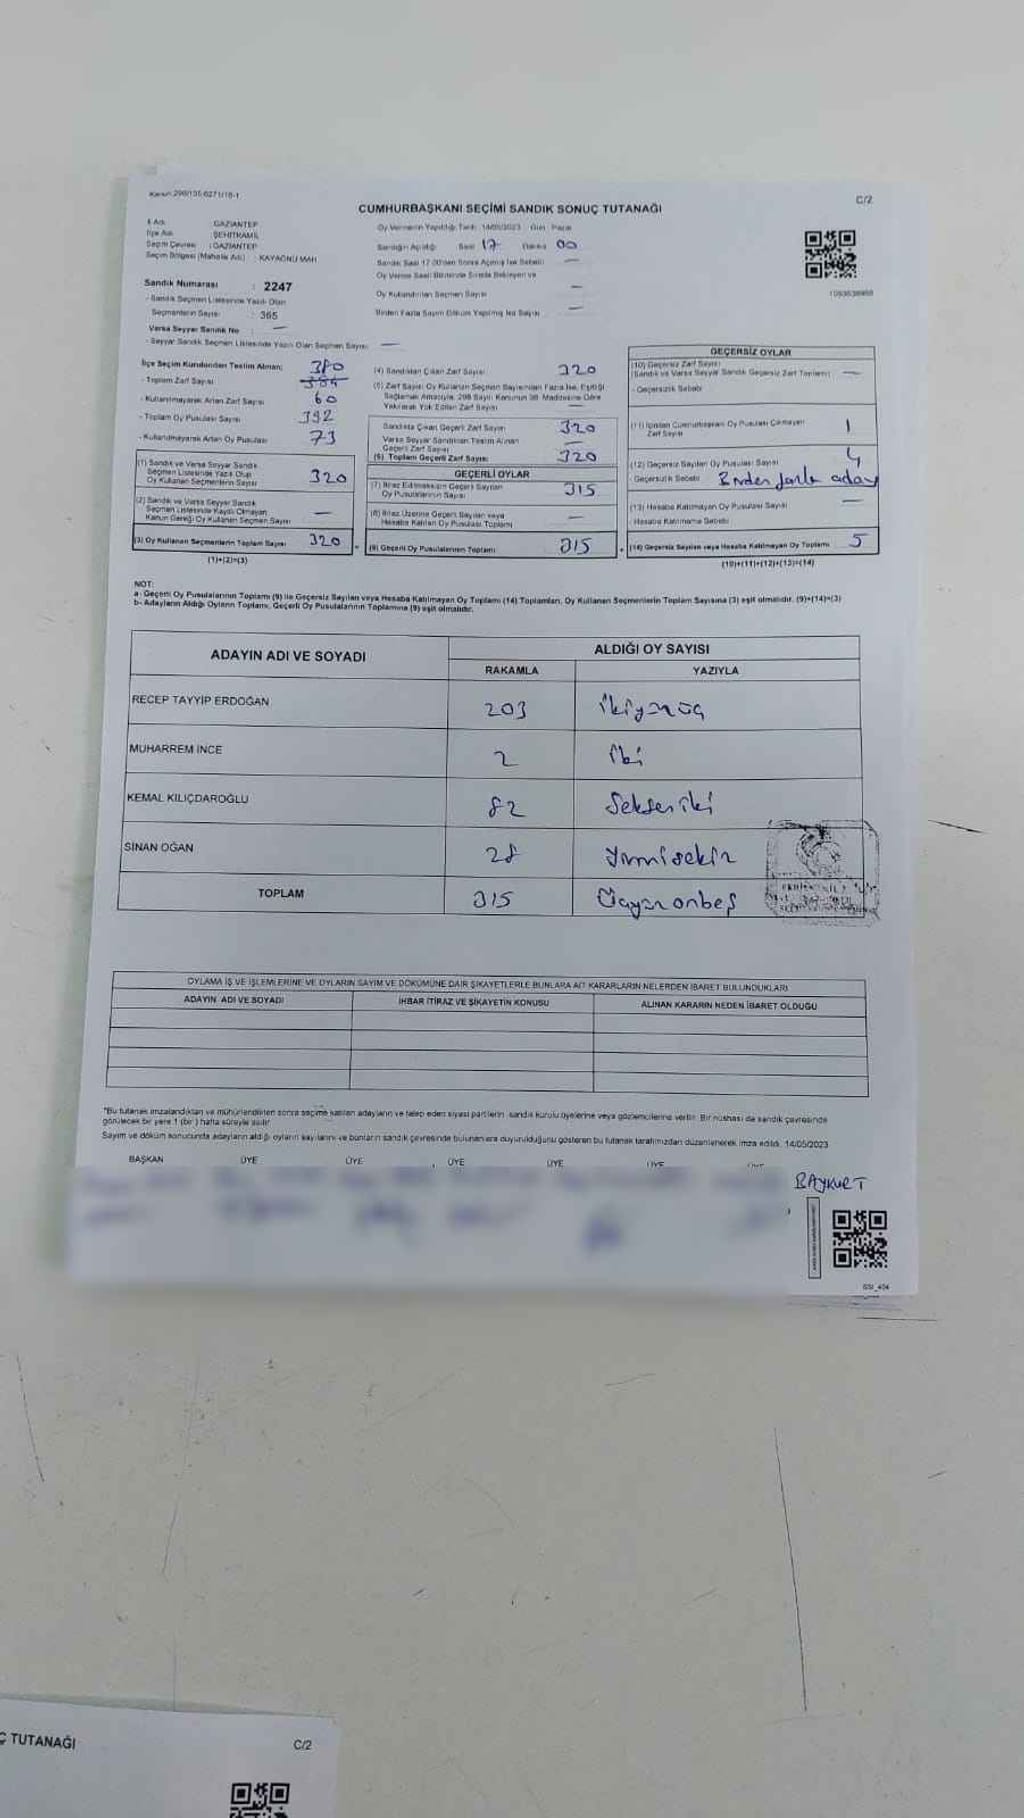 Kanun:298/105-6271/18-1
C/2
CUMHURBAŞKANI SEÇİMİ SANDIK SONUÇ TUTANAĞI
İl Adı : GAZİANTEP
İlçe Adı : ŞEHİTKAMİL
Seçim Çevresi : GAZİANTEP
Seçim Bölgesi (Mahalle Adı) : KAYAÖNÜ MAH
Oy Vermenin Yapıldığı Tarih: 14/05/2023 Gün: Pazar
Sandığın Açıldığı Saat 17 Dakika 00
Sandık Saat 17:00'den Sonra Açılmış İse Sebebi
Oy Verme Saati Bitiminde Sırada Bekleyen ve
Oy Kullandırılan Seçmen Sayısı —
Birden Fazla Sayım Döküm Yapılmış İse Sayısı —
Sandık Numarası : 2247
- Sandık Seçmen Listesinde Yazılı Olan
Seçmenlerin Sayısı : 365
Varsa Seyyar Sandık No —
- Seyyar Sandık Seçmen Listesinde Yazılı Olan Seçmen Sayısı —
İlçe Seçim Kurulundan Teslim Alınan; 380
- Toplam Zarf Sayısı
- Kullanılmayarak Artan Zarf Sayısı 60
- Toplam Oy Pusulası Sayısı 392
- Kullanılmayarak Artan Oy Pusulası 73
(1) Sandık ve Varsa Seyyar Sandık
Seçmen Listesinde Yazılı Olup
Oy Kullanan Seçmenlerin Sayısı 320
(2) Sandık ve Varsa Seyyar Sandık
Seçmen Listesinde Kayıtlı Olmayan
Kanun Gereği Oy Kullanan Seçmen Sayısı —
(3) Oy Kullanan Seçmenlerin Toplam Sayısı 320
(1)+(2)=(3)
(4) Sandıktan Çıkan Zarf Sayısı 320
(5) Zarf Sayısı Oy Kullanan Seçmen Sayısından Fazla İse, Eşitliği
Sağlamak Amacıyla, 298 Sayılı Kanunun 98. Maddesine Göre
Yakılarak Yok Edilen Zarf Sayısı —
Sandıkta Çıkan Geçerli Zarf Sayısı 320
Varsa Seyyar Sandıktan Teslim Alınan
Geçerli Zarf Sayısı —
(6) Toplam Geçerli Zarf Sayısı 320
GEÇERLİ OYLAR
(7) İtiraz Edilmeksizin Geçerli Sayılan
Oy Pusulalarının Sayısı 315
(8) İtiraz Üzerine Geçerli Sayılan veya
Hesaba Katılan Oy Pusulası Toplamı —
(9) Geçerli Oy Pusulalarının Toplamı 315
GEÇERSİZ OYLAR
(10) Geçersiz Zarf Sayısı
(Sandık ve Varsa Seyyar Sandık Geçersiz Zarf Toplamı) —
- Geçersizlik Sebebi
(11) İçinden Cumhurbaşkanı Oy Pusulası Çıkmayan
Zarf Sayısı 1
(12) Geçersiz Sayılan Oy Pusulası Sayısı 4
- Geçersizlik Sebebi Birden fazla aday
(13) Hesaba Katılmayan Oy Pusulası Sayısı —
- Hesaba Katılmama Sebebi
(14) Geçersiz Sayılan veya Hesaba Katılmayan Oy Toplamı 5
(10)+(11)+(12)+(13)=(14)
NOT:
a- Geçerli Oy Pusulalarının Toplamı (9) ile Geçersiz Sayılan veya Hesaba Katılmayan Oy Toplamı (14) Toplamları, Oy Kullanan Seçmenlerin Toplam Sayısına (3) eşit olmalıdır. (9)+(14)=(3)
b- Adayların Aldığı Oyların Toplamı, Geçerli Oy Pusulalarının Toplamına (9) eşit olmalıdır.
ADAYIN ADI VE SOYADI
ALDIĞI OY SAYISI
RAKAMLA YAZIYLA
RECEP TAYYİP ERDOĞAN 203 ikiyüzüç
MUHARREM İNCE 2 iki
KEMAL KILIÇDAROĞLU 82 Seksen iki
SİNAN OĞAN 28 Yirmisekiz
TOPLAM 315 Üçyüz onbeş
OYLAMA İŞ VE İŞLEMLERİNE VE OYLARIN SAYIM VE DÖKÜMÜNE DAİR ŞİKAYETLERLE BUNLARA AİT KARARLARIN NELERDEN İBARET BULUNDUKLARI
ADAYIN ADI VE SOYADI İHBAR İTİRAZ VE ŞİKAYETİN KONUSU ALINAN KARARIN NEDEN İBARET OLDUĞU
*Bu tutanak imzalandıktan ve mühürlendikten sonra seçime katılan adayların ve talep eden siyasi partilerin sandık kurulu üyelerine veya gözlemcilerine verilir. Bir nüshası da sandık çevresinde
görülecek bir yere 1 (bir) hafta süreyle asılır.
Sayım ve döküm sonucunda adayların aldığı oyların sayılarını ve bunların sandık çevresinde bulunanlara duyurulduğunu gösteren bu tutanak tarafımızdan düzenlenerek imza edildi. 14/05/2023
BAŞKAN ÜYE ÜYE ÜYE ÜYE ÜYE ÜYE
BAYKURT
Ç TUTANAĞI C/2